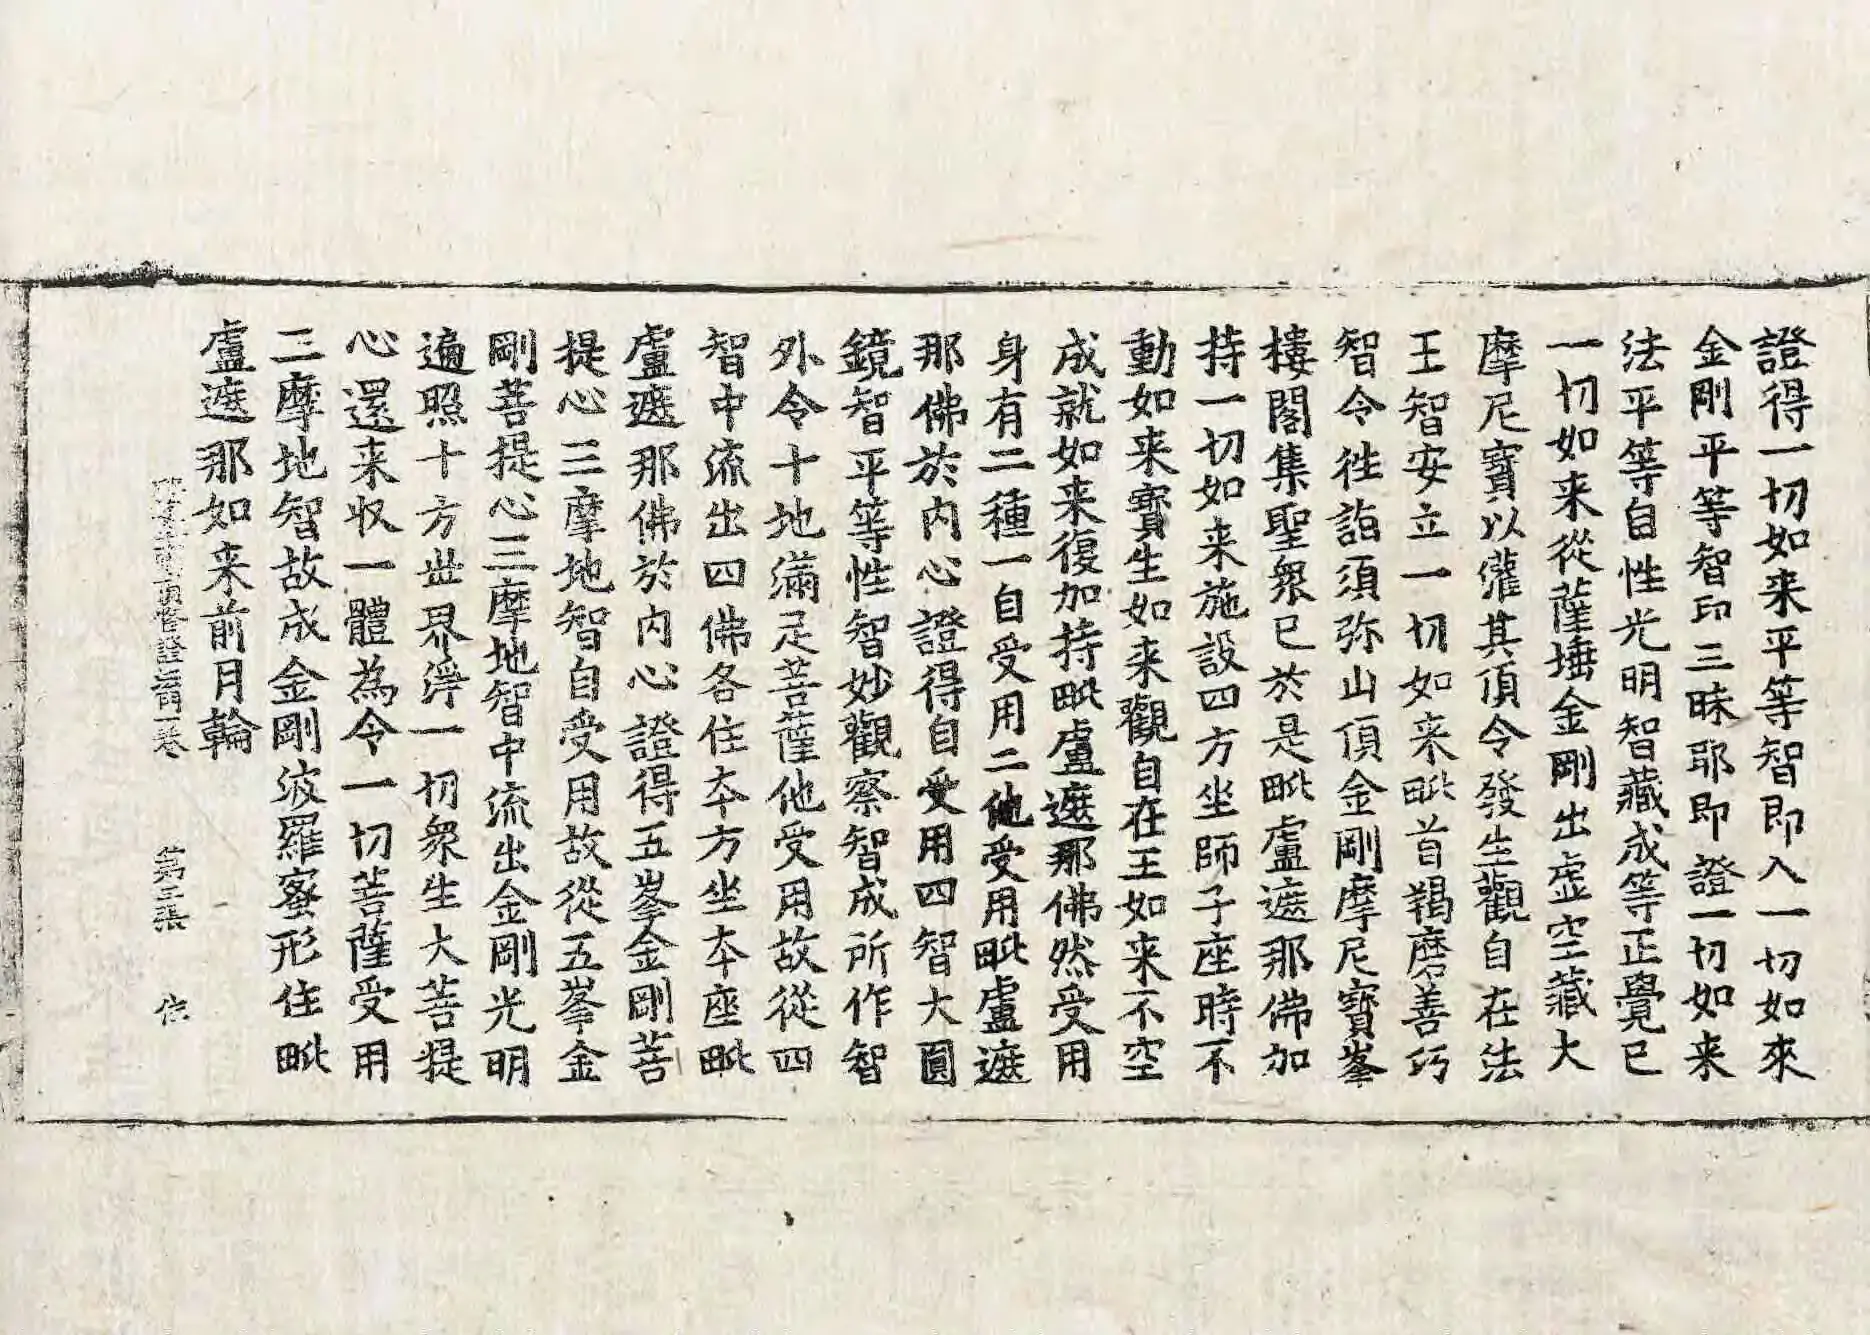 證得一切如来平等智即入一切如來
金剛平等智印三昧耶即證一切如来
法平等自性光明智藏成等正覺已
一切如来從薩埵金剛出虛空藏大
摩尼寳以灌其頂令發生觀自在法
王智安立一切如来毗首羯磨善巧
智令徃詣須弥山頂金剛摩尼寳峯
樓閣集聖衆已於是毗盧遮那佛加
持一切如来施設四方坐師子座時不
動如来寳生如来觀自在王如来不空
成就如来復加持毗盧遮那佛然受用
身有二種一自受用二他受用毗盧遮
那佛於内心證得自受用四智大圓
鏡智平等性智妙觀察智成所作智
外令十地滿足菩薩他受用故從四
智中流出四佛各住本方坐本座毗
盧遮那佛於内心證得五峯金剛菩
提心三摩地智自受用故從五峯金
剛菩提心三摩地智中流出金剛光明
遍照十方世界淨一切衆生大菩提
心還来収一體為令一切菩薩受用
三摩地智故成金剛波羅蜜形住毗
盧遮那如来前月輪
頂修證一卷 第三張